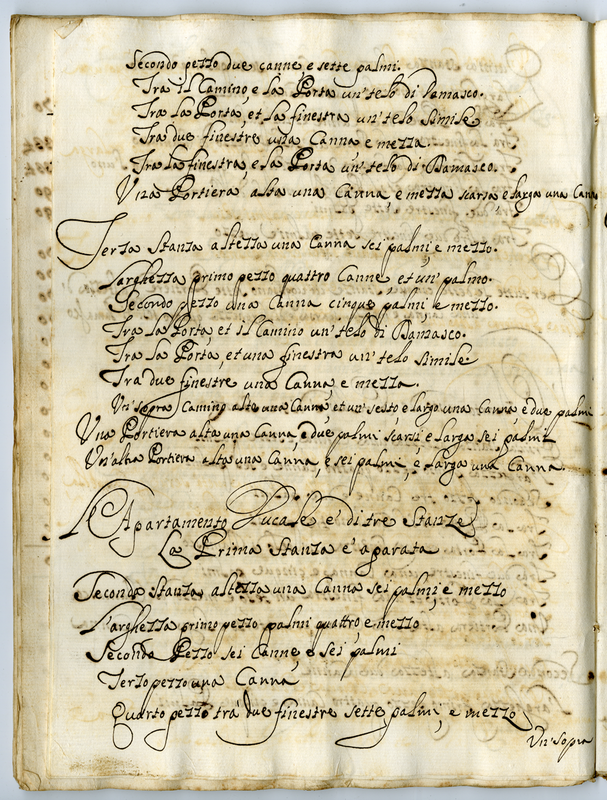 Secondo pezzo due canne, e sette palmi.
Tra il Camino, e la Porta un'telo di Damasco.
Tra la Porta, et la finestra un'telo simile
Tra due finestre una Canna e mezza.
Tra la finestra, e la Porta un'telo di Damasco.
Una Portiera alta una Canna e mezza scarsa, e larga una Canna
Terza stanza altezza una Canna sei palmi e mezzo.
Larghezza primo pezzo quattro Canne et un'palmo.
Secondo pezzo una Canna cinque palmi, e mezzo.
Tra la Porta et il Camino un'telo di Damasco.
Tra la Porta, et una finestra un'telo simile
Tra due finestre una Canna e mezza.
Un'sopra Camino alto una Canna, et un'sesto, e largo una Canna e due palmi
Una Portiera alta una Canna, e due palmi scarsi e larga sei palmi
Un'altra Portiera alta una Canna, e sei palmi, e larga una Canna.
L'Apartamento Ducale è di tre Stanze
La Prima Stanza è aparata
Seconda Stanza, altezza una Canna sei palmi, e mezzo
Larghezza primo pezzo palmi quattro e mezzo
Secondo Pezzo sei Canne, e sei palmi
Terzo pezzo una Canna
Quarto pezzo tra due finestre sette palmi, e mezzo
Un'sopra